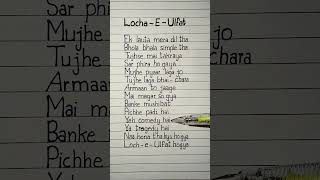 Locha - E - Ulfat
Ek lauta mera dil tha
Bhola bhala simple tha
Tujhse mai takraya
Sar phira ho gaya
Mujhe pyaar laga jo
Tujhe laga bhai - chara
Armaan to jaage
Mai magar so gya
Banke mushibat
Pichhe padi hai
Yeh comedy hai
Ya tragedy hai
Naa hona tha kyu hogya
Loch - e - Ulfat hogya
Sar p
Mujhe
Tujhe
Armaan
Mai
Banke
Pichhe
Yeh
chara